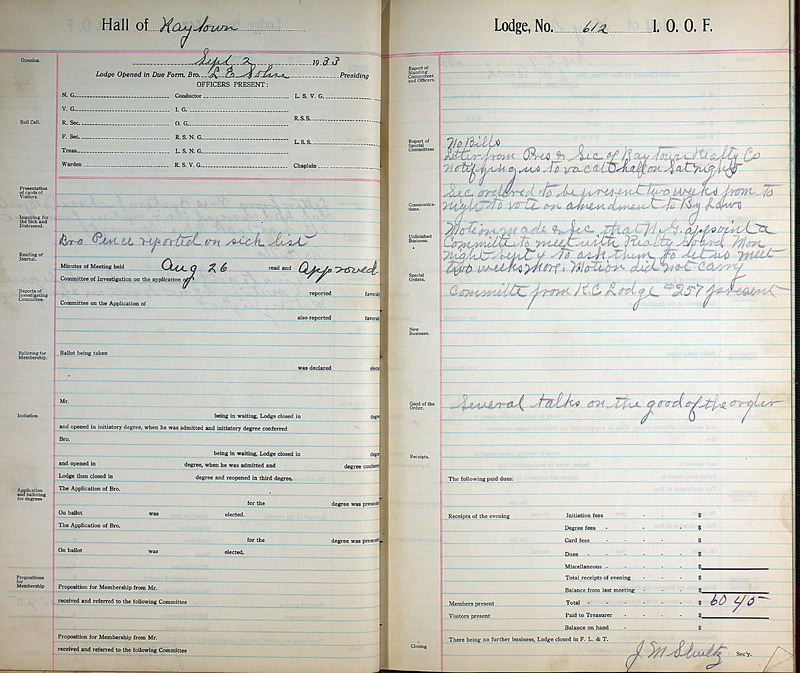 Hall of Raytown
Sept 2 1933
Opening.
Lodge Opened in Due Form, Bro. L E Presiding
OFFICERS PRESENT:
Roll Call.
N. G. Conductor L. S. V. G.
V. G. I. G.
R. Sec. O. G. R. S. S.
F. Sec. R. S. N. G.
Treas. L. S. N. G. L. S. S.
Warden R. S. V. G. Chaplain
Presentation of cards of Visitors.
Inquiring for the Sick and Distressed.
Bro Pence reported on sick list
Reading of Journal.
Minutes of Meeting held Aug 26 read and approved
Committee of Investigation on the application
Reports of Investigating Committee.
reported
Committee on the Application of
also reported
Balloting for Membership.
Ballot being taken
was declared
Mr.
Initiation
being in waiting, Lodge closed in
and opened in initiatory degree, when he was admitted and initiatory degree conferred
Bro.
being in waiting, Lodge closed in
and opened in degree, when he was admitted and degree
Lodge then closed in degree and reopened in third degree.
Application and balloting for degrees
The Application of Bro.
for the degree was
On ballot was elected.
The Application of Bro.
for the degree was
On ballot was elected.
Propositions for Membership
Proposition for Membership from Mr.
received and referred to the following Committee
Proposition for Membership from Mr.
received and referred to the following Committee
Lodge, No. 612 I. O. O. F.
Report of Standing Committees and Officers.
Report of Special Committees
No Bills
Letter from Pres & Sec of Raytown Realty Co
notifying us to vacate hall on Sat night
Communications.
Sec ordered to be present two weeks from to
night to vote on amendment to By Laws
Unfinished Business.
Motion made & Sec that N. G. appoint a
Committe to meet with Realty board Mon
night Sept 4 to ask them to let us meet
two weeks more. Motion did not carry
Special Orders.
Committe from K.C Lodge #257 present
New Business.
Good of the Order.
Several talks on the good of the order
Receipts.
The following paid dues:
Receipts of the evening Initiation fees $
Degree fees $
Card fees $
Dues $
Miscellaneous $
Total receipts of evening $
Balance from last meeting $
Members present Total $ 60 45
Visitors present Paid to Treasurer $
Balance on hand $
There being no further business, Lodge closed in F. L. & T.
Closing
J M Shultz Sec'y.